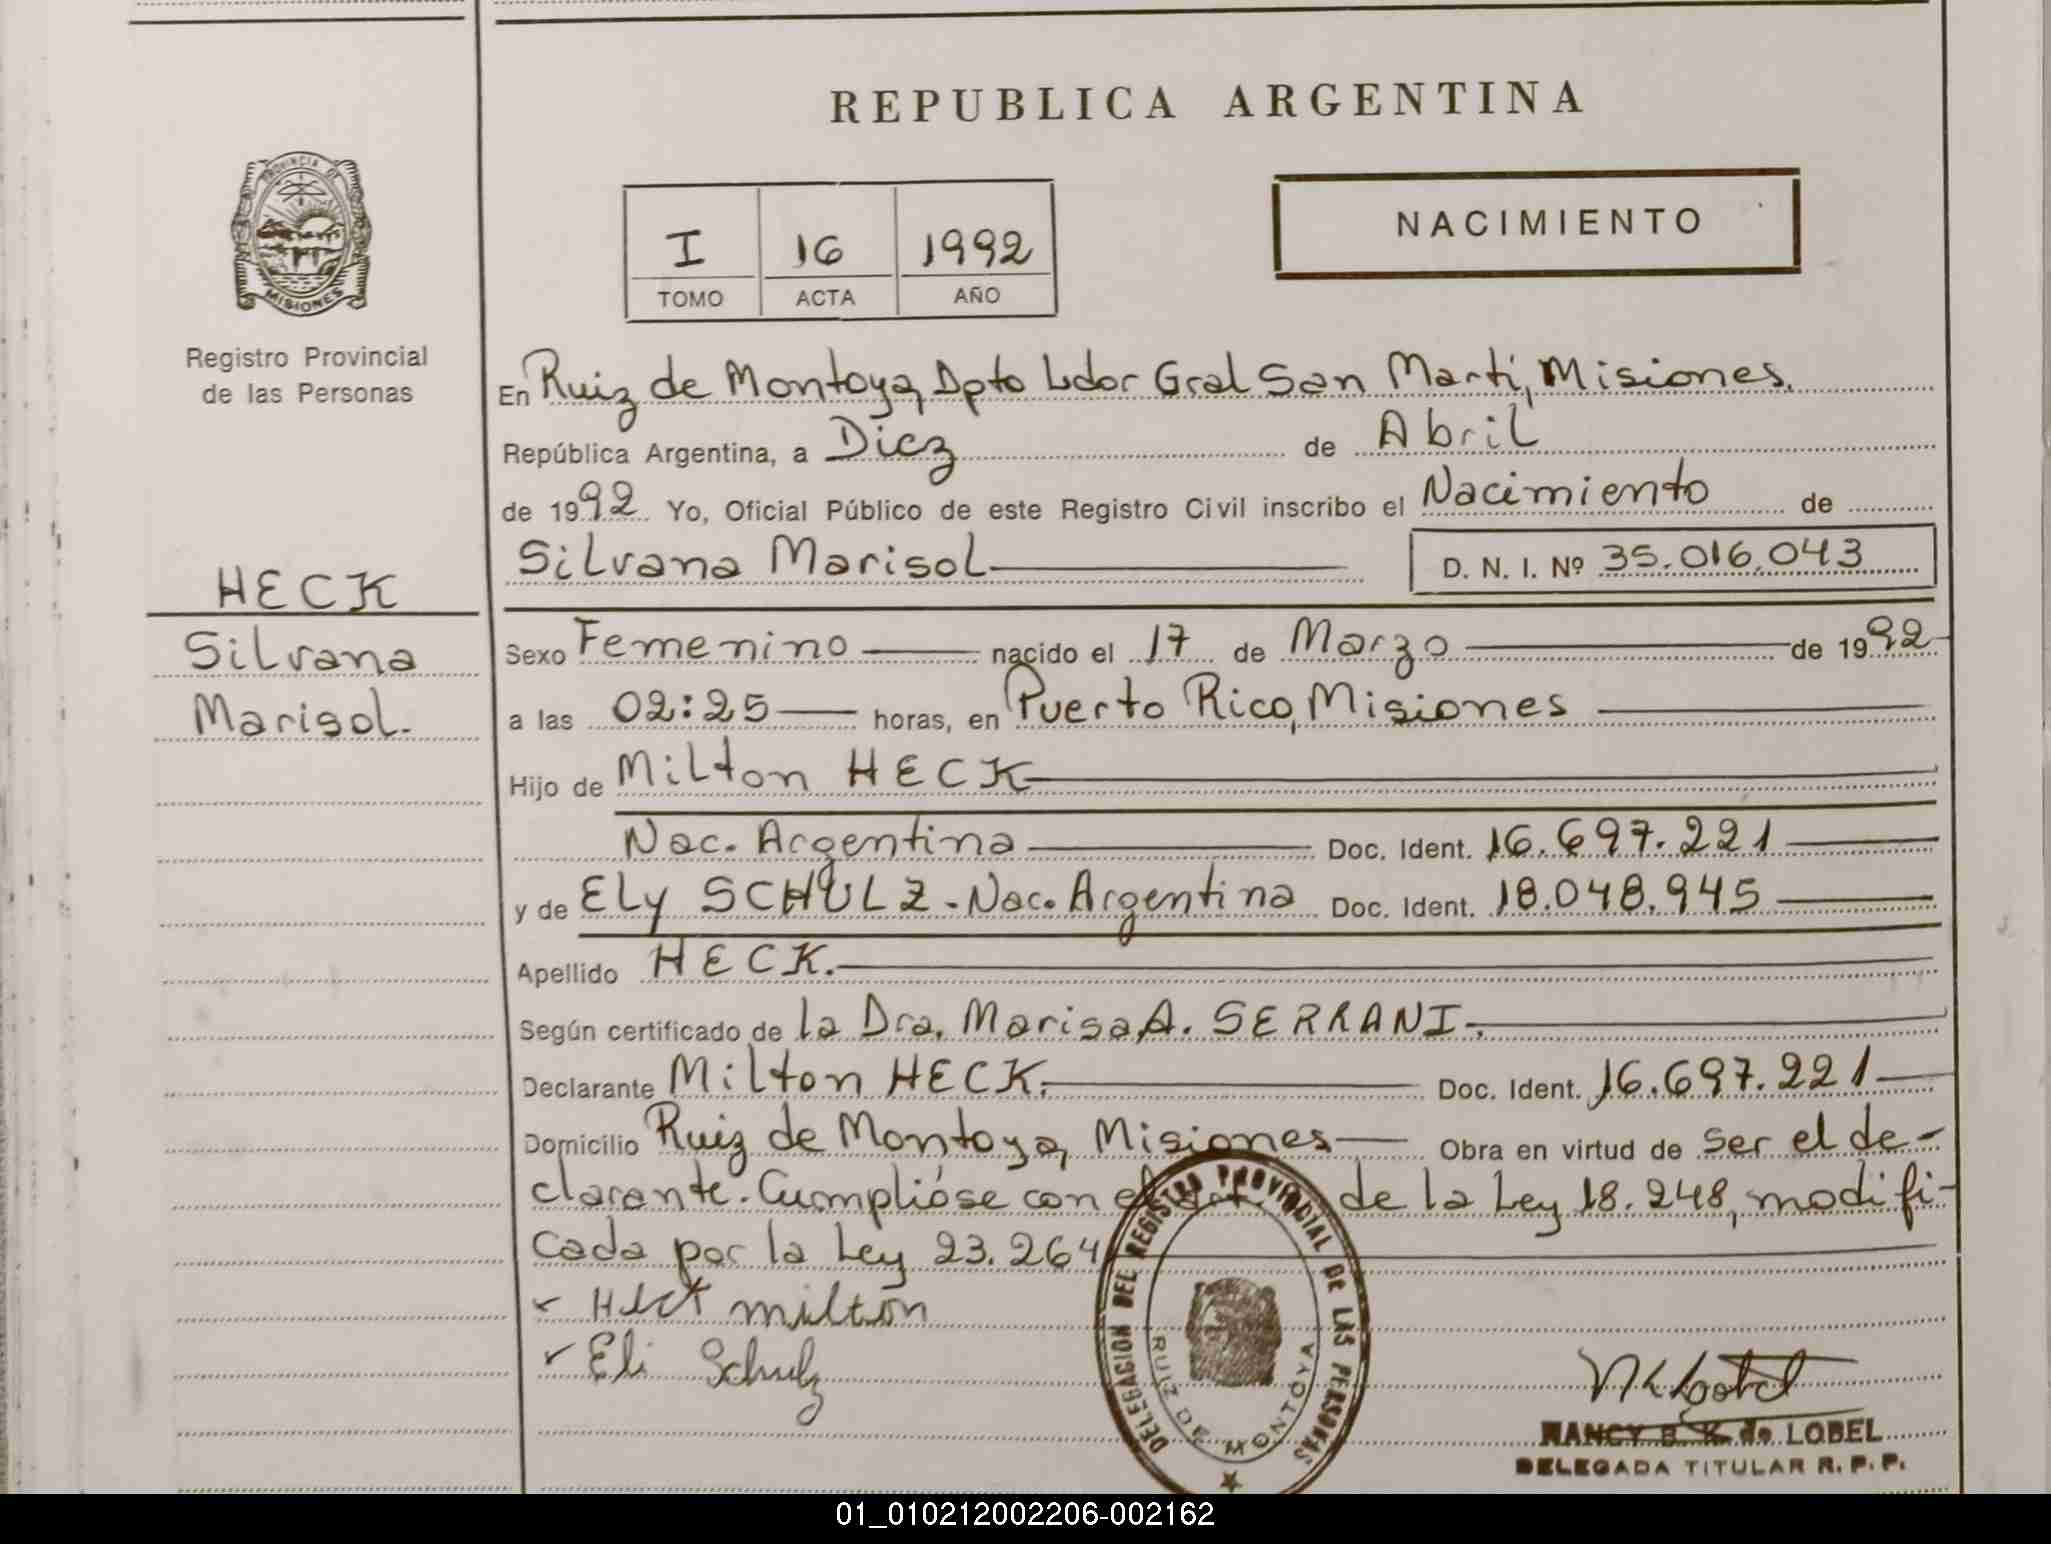 REPUBLICA ARGENTINA
PROVINCIA DE
MISIONES
I 16 1992
TOMO ACTA AÑO
NACIMIENTO
Registro Provincial
de las Personas
En Ruiz de Montoya, Dpto Ldor Gral San Marti, Misiones.
República Argentina, a Diez de Abril
de 1992 Yo, Oficial Público de este Registro Civil inscribo el Nacimiento de
Silvana Marisol
D. N. I. Nº 35.016.043
HECK
Silvana
Marisol.
Sexo Femenino nacido el 17 de Marzo de 1992
a las 02:25 horas, en Puerto Rico, Misiones
Hijo de Milton HECK
Nac. Argentina Doc. Ident. 16.697.221
y de ELy SCHULZ - Nac. Argentina Doc. Ident. 18.048.945
Apellido HECK.
Según certificado de la Dra. Marisa A. SERRANI.
Declarante Milton HECK. Doc. Ident. 16.697.221
Domicilio Ruiz de Montoya, Misiones Obra en virtud de ser el de-
clarante. Cumplióse con el de la Ley 18.248, modifi-
cada por la Ley 23.264
Heck milton
Eli Schulz
DELEGACION DEL REGISTRO PROVINCIAL DE LAS PERSONAS
RUIZ DE MONTOYA
NANCY B. K. de LOBEL
DELEGADA TITULAR R. P. P.
01_010212002206-002162